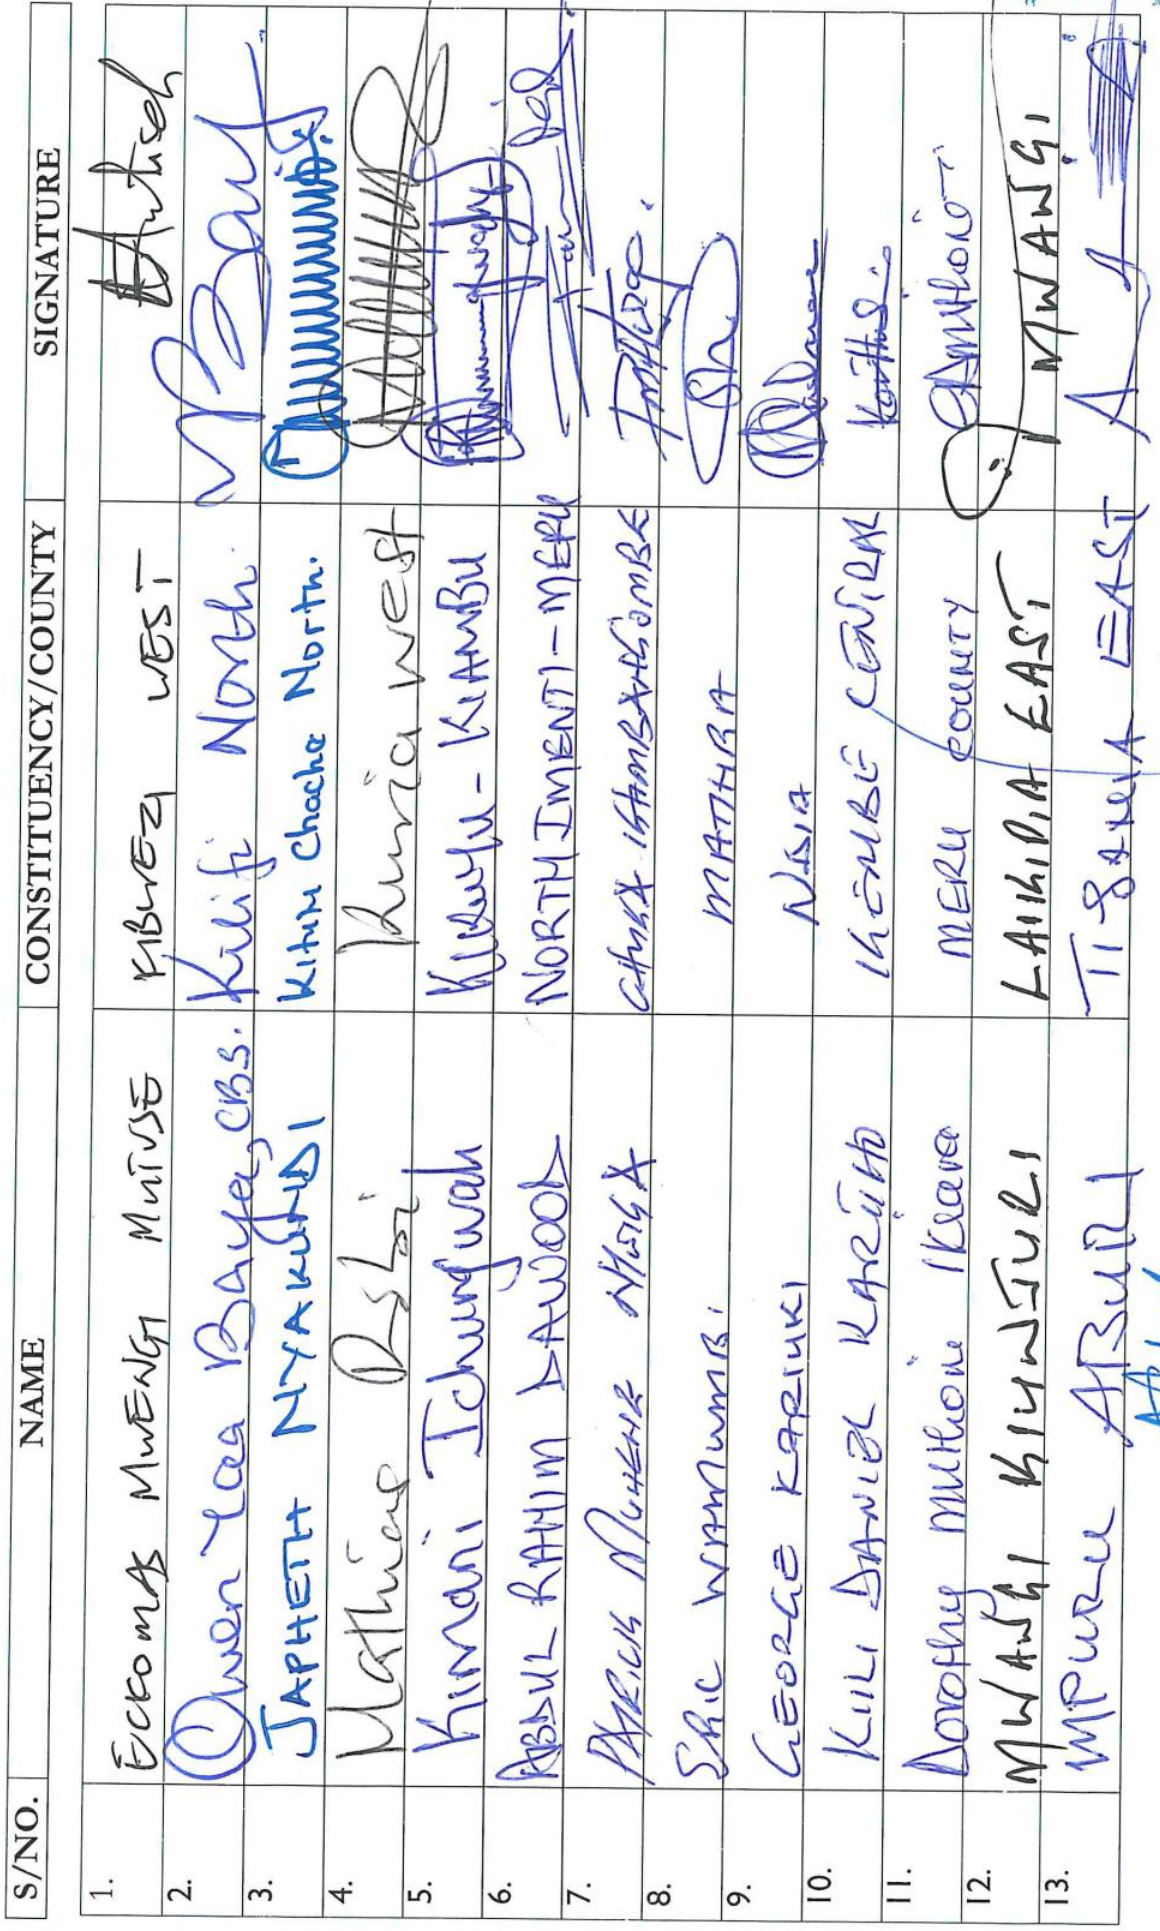 S/NO. NAME CONSTITUENCY/COUNTY SIGNATURE
1. ECKOMAS MWENGI MUTUSE KIBWEZI WEST
2. Owen Yaa Baya, CBS. Kilifi North.
3. JAPHETH NYAKUNDI Kitutu Chache North.
4. Mathias Robi Kuria west
5. Kimani Ichung'wah Kikuyu - KIAMBU
6. ABDUL RAHIM DAWOOD NORTH IMENTI - MERU
7. GICHUGU
8. ERIC WAMUMBI. MATHIRA
9. GEORGE KARIUKI NDIA
10. KIILI DANIEL KARITHO IGEMBE CENTRAL
11. Dorothy Muthoni Ikiara MERU COUNTY
12. MWANGI KIUNJURI LAIKIPIA EAST MWANGI
13. MPURU ABURI TIGANIA EAST